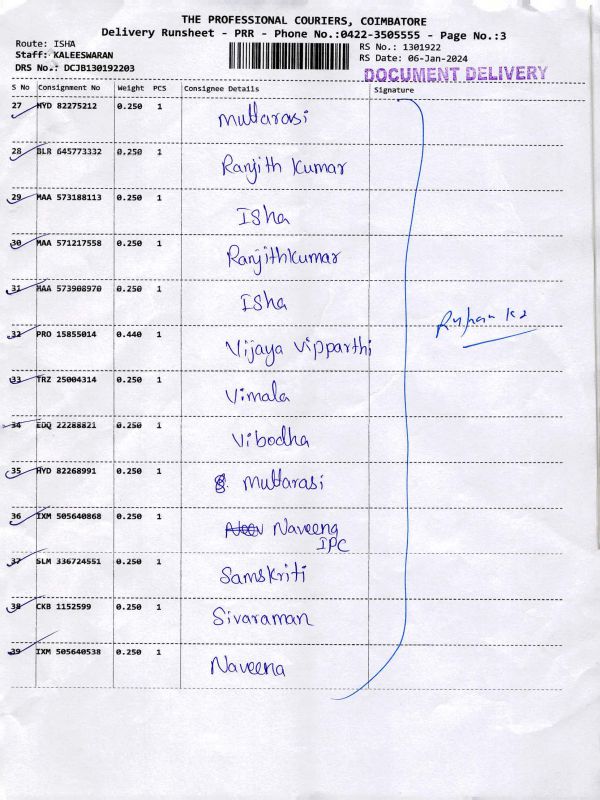 THE PROFESSIONAL COURIERS, COIMBATORE
Delivery Runsheet - PRR - Phone No.:0422-3505555 - Page No.:3
Route: ISHA
Staff: KALEESWARAN
DRS No.: DCJB130192203
RS No.: 1301922
RS Date: 06-Jan-2024
DOCUMENT DELIVERY
S No Consignment No Weight PCS Consignee Details Signature
27 HYD 82275212 0.250 1 Muttarasi
28 BLR 645773332 0.250 1 Ranjith Kumar
29 MAA 573188113 0.250 1 Isha
30 MAA 571217558 0.250 1 Ranjithkumar
31 MAA 573908970 0.250 1 Isha
32 PRO 15855014 0.440 1 Vijaya Vipparthi
33 TRZ 25004314 0.250 1 Vimala
34 EDQ 22288821 0.250 1 Vibodha
35 HYD 82268991 0.250 1 Muttarasi
36 IXM 505640868 0.250 1 Naveena
IPC
37 SLM 336724551 0.250 1 Samskriti
38 CKB 1152599 0.250 1 Sivaraman
39 IXM 505640538 0.250 1 Naveena